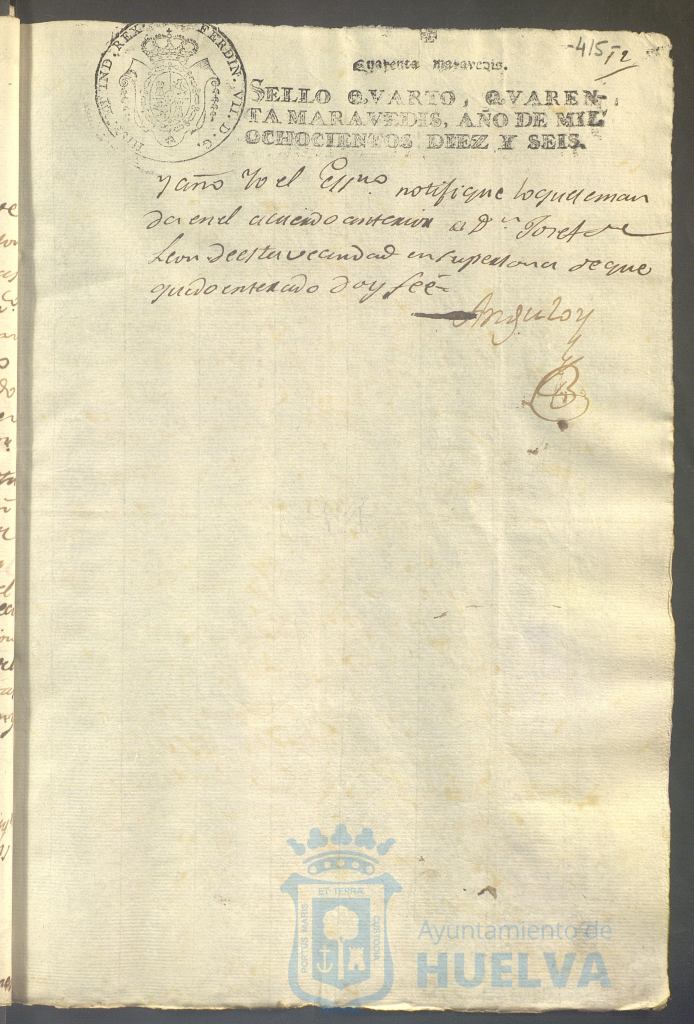 HISP. ET IND. REX. FERDIN. VII. D. G.
-415-
12
Quarenta maravedis.
SELLO QVARTO, QVAREN-
TA MARAVEDIS, AÑO DE MIL
OCHOCIENTOS DIEZ Y SEIS.
y año Yo el Essno notifique lo que se man
da en el acuerdo anterior a Dn Josef de
Leon de esta vecindad en su persona de que
quedo enterado doy feé
Anguloy
PORTUS MARIS
ET TERRÆ
CUSTODIA
Ayuntamiento de
HUELVA